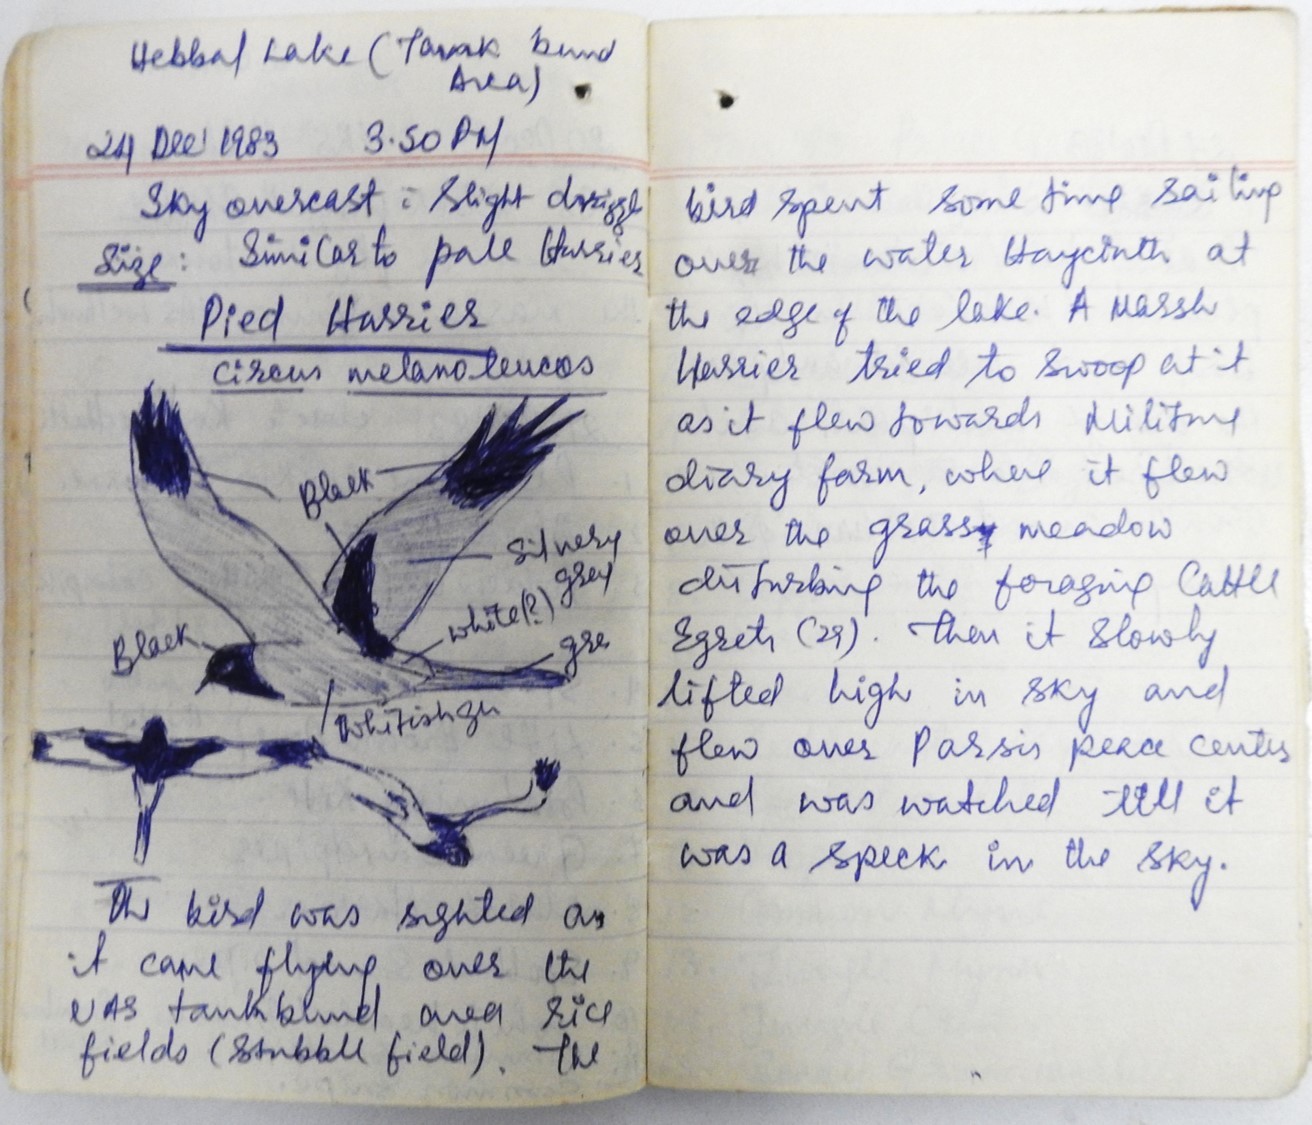 Hebbal Lake (Tank bund
Area)
24 Dec' 1983 3.50 PM
Sky overcast : Slight drizzle
Size : Similar to pale Harrier
Pied Harrier
circus melanoleucos
Black
silvery
grey
white(?)
gre
Black
Whitish
The bird was sighted as
it came flying over the
UAS tankbund area rice
fields (stubble field). The
bird spent some time sailing
over the water Haycinth at
the edge of the lake. A Marsh
Harrier tried to swoop at it
as it flew towards
diary farm, where it flew
over the grassy meadow
disturbing the foraging Cattle
Egrets (29). Then it slowly
lifted high in sky and
flew over Parsis peace center
and was watched till it
was a speck in the sky.